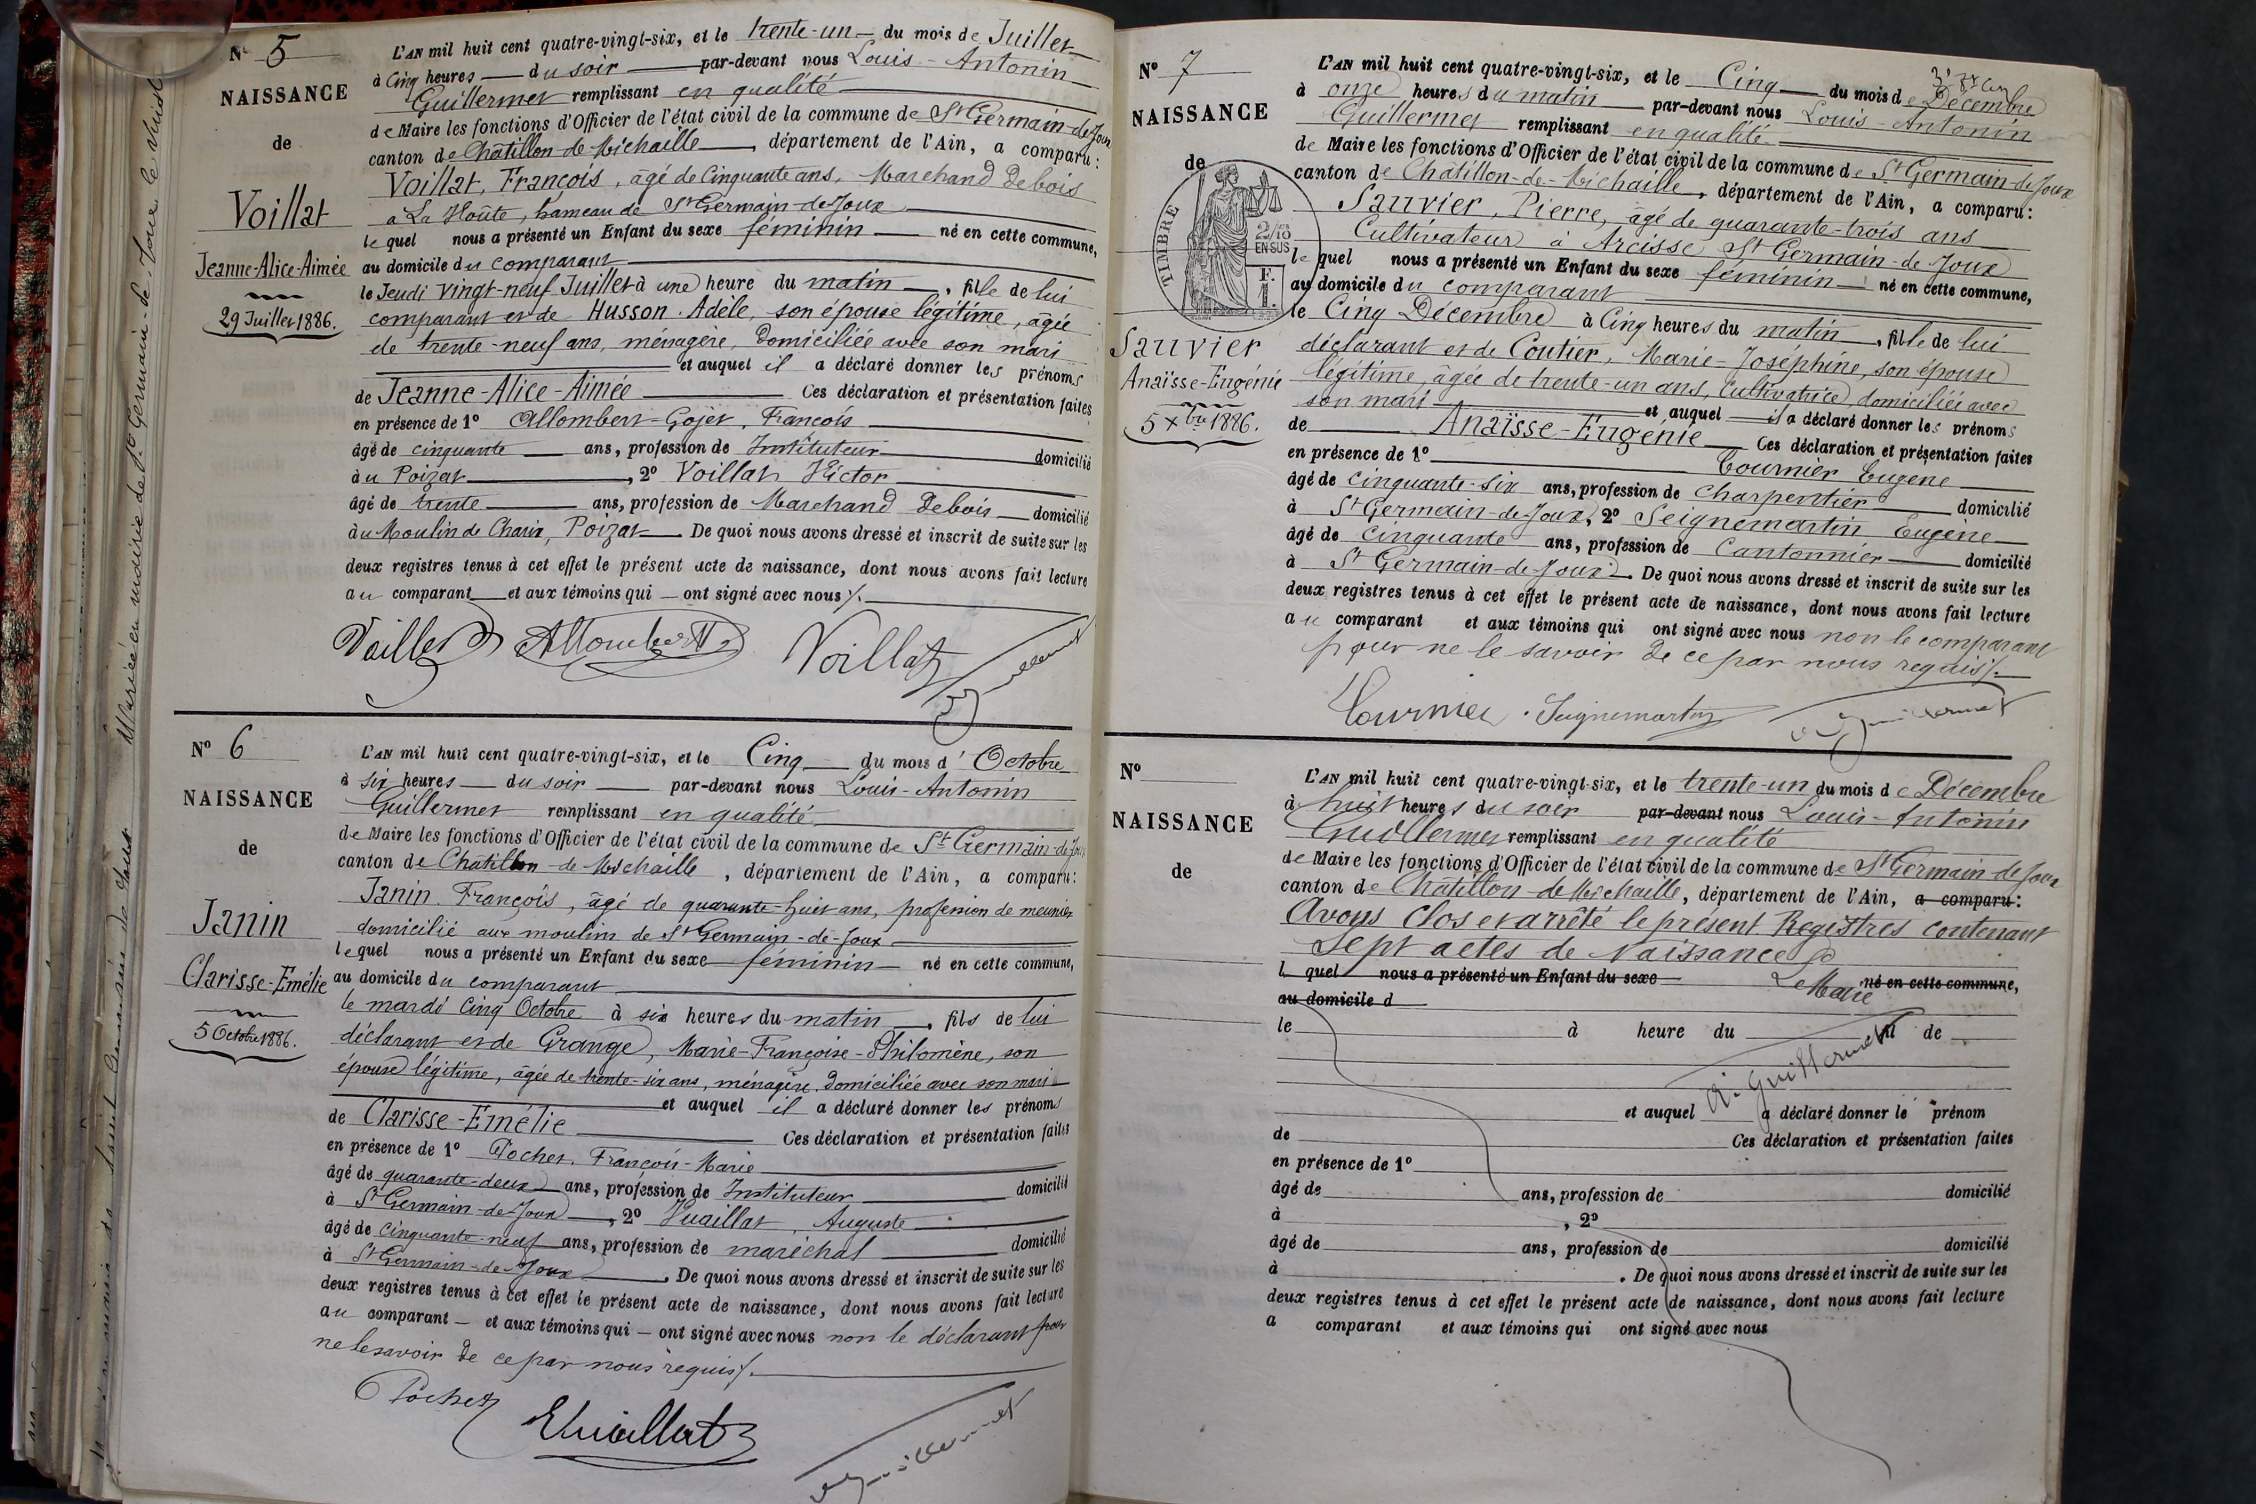 N° 5
NAISSANCE
de
Voillat
Jeanne-Alice-Aimée
29 Juillet 1886.
L'AN mil huit cent quatre-vingt-six, et le trente-un du mois de Juillet
à Cinq heures du soir par-devant nous Louis-Antonin
Guillermet remplissant en qualité
de Maire les fonctions d'Officier de l'état civil de la commune de St Germain-de-Joux
canton de Châtillon-de-Michaille, département de l'Ain, a comparu:
Voillat, François, âgé de Cinquante ans, Marchand de bois
a La Voûte, hameau de St Germain-de-Joux
lequel nous a présenté un Enfant du sexe féminin né en cette commune,
au domicile du comparant
le Jeudi vingt-neuf Juillet à une heure du matin, fille de lui
comparant et de Husson Adèle, son épouse légitime, âgée
de trente-neuf ans, ménagère, domiciliée avec son mari
et auquel il a déclaré donner les prénoms
de Jeanne-Alice-Aimée Ces déclaration et présentation faites
en présence de 1° Allombert-Gojet, François
âgé de cinquante ans, profession de Instituteur domicilié
à u Poizat, 2° Voillat Victor
âgé de trente ans, profession de Marchand de bois domicilié
à u Moulin de Charix, Poizat. De quoi nous avons dressé et inscrit de suite sur les
deux registres tenus à cet effet le présent acte de naissance, dont nous avons fait lecture
au comparant et aux témoins qui ont signé avec nous /.
Voillat Allombert Voillat
Guillermet
N° 6
NAISSANCE
de
Janin
Clarisse-Emélie
5 Octobre 1886.
L'AN mil huit cent quatre-vingt-six, et le Cinq du mois d'Octobre
à six heures du soir par-devant nous Louis-Antonin
Guillermet remplissant en qualité
de Maire les fonctions d'Officier de l'état civil de la commune de St Germain-de-Joux
canton de Châtillon-de-Michaille, département de l'Ain, a comparu:
Janin François, âgé de quarante-huit ans, profession de meunier
domicilié aux moulins de St Germain-de-Joux
lequel nous a présenté un Enfant du sexe féminin né en cette commune,
au domicile du comparant
le mardi Cinq Octobre à six heures du matin, fils de lui
déclarant et de Grange, Marie-Françoise-Philomène, son
épouse légitime, âgée de trente-six ans, ménagère, domiciliée avec son mari
et auquel il a déclaré donner les prénoms
de Clarisse-Emélie Ces déclaration et présentation faites
en présence de 1° Pochet, François-Marie
âgé de quarante-deux ans, profession de Instituteur domicilié
à St Germain-de-Joux, 2° Vuaillat, Auguste
âgé de cinquante-neuf ans, profession de maréchal domicilié
à St Germain-de-Joux. De quoi nous avons dressé et inscrit de suite sur les
deux registres tenus à cet effet le présent acte de naissance, dont nous avons fait lecture
au comparant et aux témoins qui ont signé avec nous non le déclarant pour
ne le savoir de ce par nous requis /.
Pochet
Vuaillat
Guillermet
N° 7
NAISSANCE
de
TIMBRE
2/10
EN SUS
F.
1.
Sauvier
Anaïsse-Eugénie
5 Xbre 1886.
L'AN mil huit cent quatre-vingt-six, et le Cinq du mois de Décembre
à onze heures du matin par-devant nous Louis-Antonin
Guillermet remplissant en qualité
de Maire les fonctions d'Officier de l'état civil de la commune de St Germain-de-Joux
canton de Châtillon-de-Michaille, département de l'Ain, a comparu:
Sauvier, Pierre, âgé de quarante-trois ans
Cultivateur à Arcisse, St Germain-de-Joux
lequel nous a présenté un Enfant du sexe féminin né en cette commune,
au domicile du comparant
le Cinq Décembre à Cinq heures du matin, fille de lui
déclarant et de Coutier, Marie-Joséphine, son épouse
légitime, âgée de trente-un ans, Cultivatrice, domiciliée avec
son mari et auquel il a déclaré donner les prénoms
de Anaïsse-Eugénie Ces déclaration et présentation faites
en présence de 1° Tournier Eugène
âgé de cinquante-six ans, profession de charpentier domicilié
à St Germain-de-Joux, 2° Seignemartin Eugène
âgé de cinquante ans, profession de Cantonnier domicilié
à St Germain-de-Joux. De quoi nous avons dressé et inscrit de suite sur les
deux registres tenus à cet effet le présent acte de naissance, dont nous avons fait lecture
au comparant et aux témoins qui ont signé avec nous non le comparant
pour ne le savoir de ce par nous requis /.
Tournier Seignemartin Guillermet
N°
NAISSANCE
de
L'AN mil huit cent quatre-vingt-six, et le trente-un du mois de Décembre
à huit heures du soir par-devant nous Louis-Antonin
Guillermet remplissant en qualité
de Maire les fonctions d'Officier de l'état civil de la commune de St Germain-de-Joux
canton de Châtillon-de-Michaille, département de l'Ain, a comparu:
Avons clos et arrêté le présent Registres contenant
Sept actes de Naissances
l quel nous a présenté un Enfant du sexe né en cette commune,
Le Maire
au domicile d
le à heure du fil de
A. Guillermet
et auquel a déclaré donner le prénom
de Ces déclaration et présentation faites
en présence de 1°
âgé de ans, profession de domicilié
à , 2°
âgé de ans, profession de domicilié
à . De quoi nous avons dressé et inscrit de suite sur les
deux registres tenus à cet effet le présent acte de naissance, dont nous avons fait lecture
a comparant et aux témoins qui ont signé avec nous